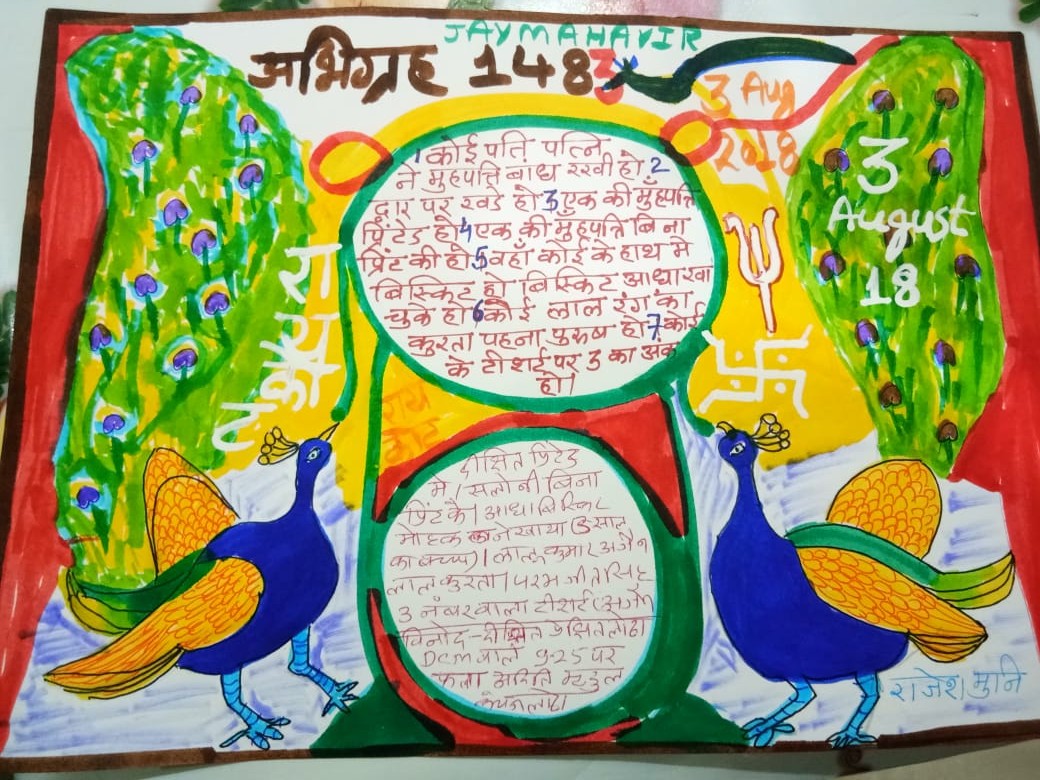 JAY MAHAVIR
अभिग्रह 1483
3 Aug
2018
3
August
18
1 कोई पति पत्नि
ने मुहपत्ति बाध रखी हो 2
द्वार पर खडे हो 3 एक की मुँहपत्ति
प्रिंटेड हो 4 एक की मुँहपत्ति बिना
प्रिंट की हो 5 वहाँ कोई के हाथ मे
बिस्किट हो । बिस्किट आधा खा
चुका हो 6 कोई लाल रंग का
कुरता पहना पुरुष हो 7 कोई
के टीशर्ट पर 3 का अंक
हो।
दीक्षित प्रिंटेड
मे । सलोनी बिना
प्रिंट के । आधा बिस्किट
ने खाया
लाल कुरता । परमजीतसिंह
3 नंबर वाला टीशर्ट
विनोद - दीक्षित
DCM वाले 9-25 पर
फला
राजेश मुनि